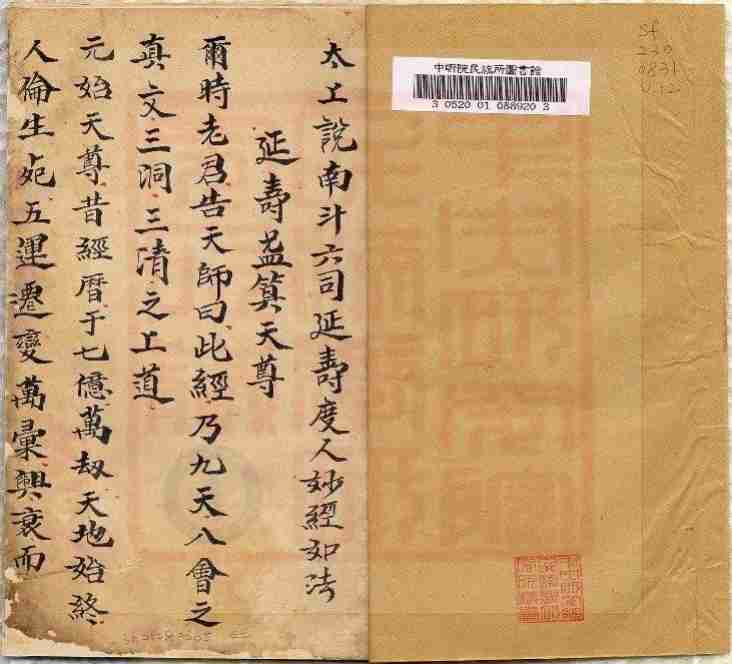 太上說南斗六司延壽度人妙經如法
延壽益筭天尊
爾時老君告天師曰此經乃九天八會之
真文三洞三清之上道
元始天尊昔經曆于七億萬劫天地始終
人倫生死五運遷變萬彙興衰而
中研院民族所圖書館
3 0520 01 088920 3